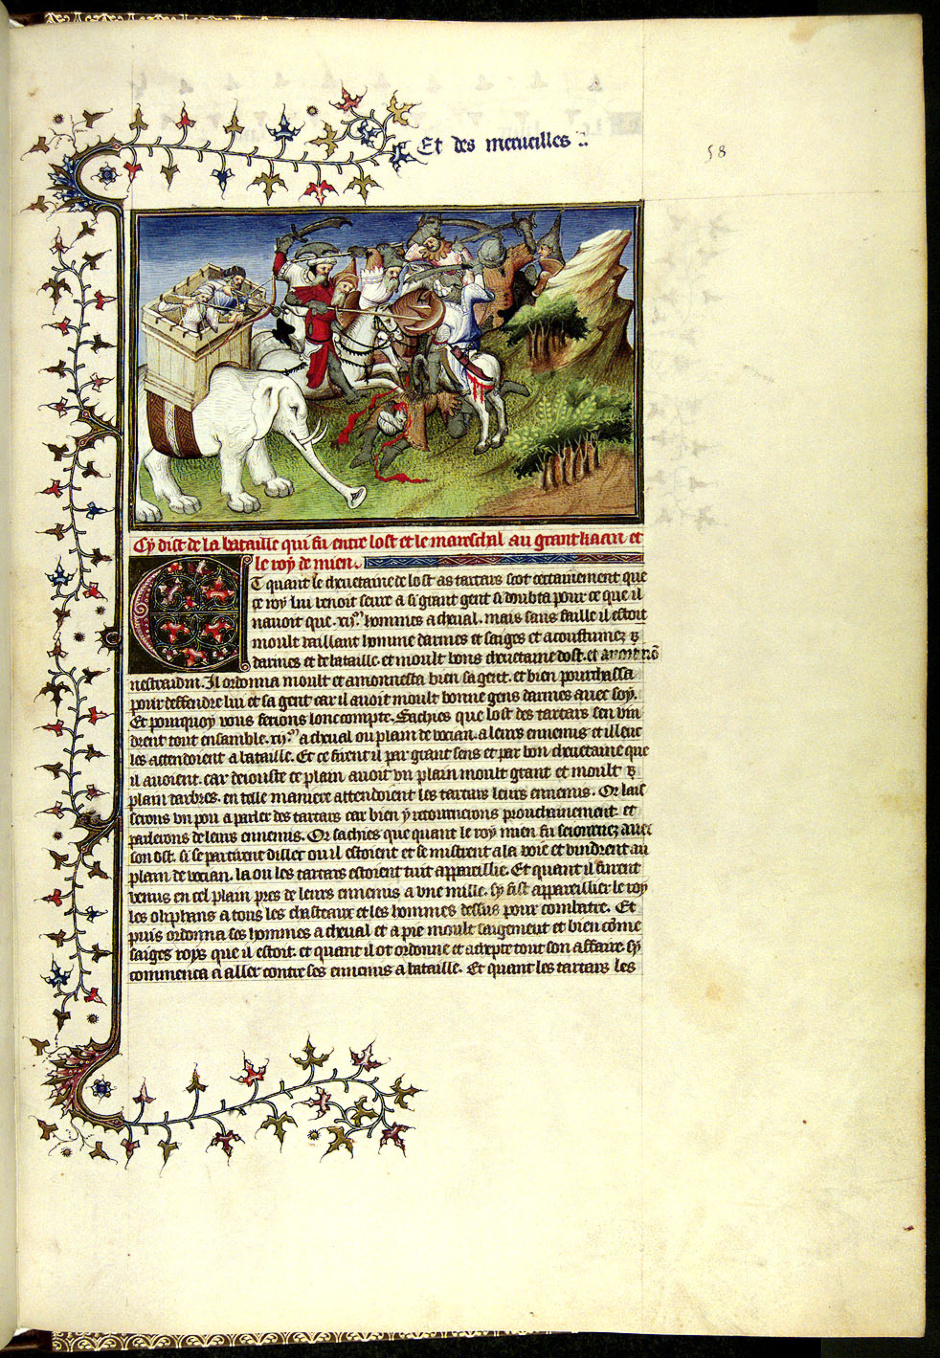 Et des merueilles
58
Cy dist de la bataille qui fu entre lost et le mareschal au grant kaan et
le roy de mien.
Et quant le cheuetaine de lost as tartars scot certainement que
ce roy lui venoit seure a si grant gent si doubta pour ce que il
nauoit que .xij.m hommes a cheual. mais sans faille il estoit
moult vaillant homme darmes et saiges et acoustumez
darmes et de bataille. et moult bons cheuetaine dost. et
Il ordonna moult et amonnesta bien sa gent. et bien pourchassa
pour deffendre lui et sa gent car il auoit moult bonne gens darmes auec soy.
Et pourquoy vous ferons lonc compte. Sachies que lost des tartars sen vin
drent tout ensemble .xij.m a cheual ou plain de vocian. a leurs ennemis et illeuc
les attendoient a bataille. Et ce firent il par grant sens et par bon cheuetaine que
il auoient. car deiouste ce plain auoit vn plain moult grant et moult
plain darbres. en telle maniere attendoient les tartars leurs ennemis. Or lais
serons vn pou a parler des tartars car bien y retournerons prouchainement. et
parlerons de leurs ennemis. Or sachies que quant le roy mien fu seiournez auec
son ost. si se partirent dillec ou il estoient et se mistrent a la voie et vindrent au
plain de vocian. la ou les tartars estoient tuit appareillie. Et quant il furent
venus en cel plain pres de leurs ennemis a vne mille. sy fist appareillier le roy
les oliphans a tous les chasteaux et les hommes dessus pour combatre. Et
puis ordonna ses hommes a cheual et a pie moult saigement et bien cõme
saiges roys que il estoit. et quant il ot ordonne et tout son affaire sy
commenca a aller contre ses ennemis a bataille. Et quant les tartars les